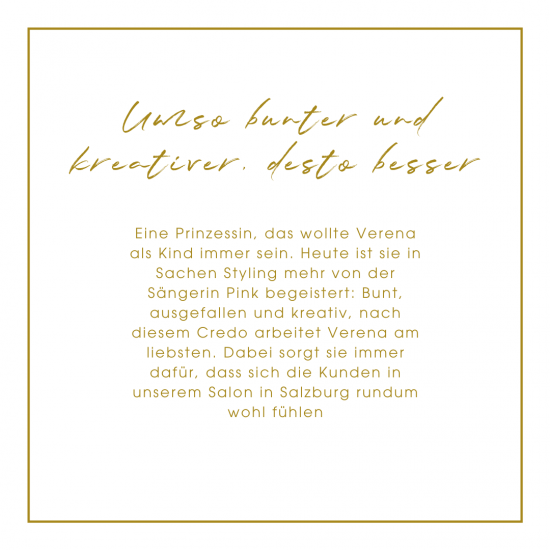 Umso bunter und
kreativer, desto besser
Eine Prinzessin, das wollte Verena
als Kind immer sein. Heute ist sie in
Sachen Styling mehr von der
Sängerin Pink begeistert: Bunt,
ausgefallen und kreativ, nach
diesem Credo arbeitet Verena am
liebsten. Dabei sorgt sie immer
dafür, dass sich die Kunden in
unserem Salon in Salzburg rundum
wohl fühlen